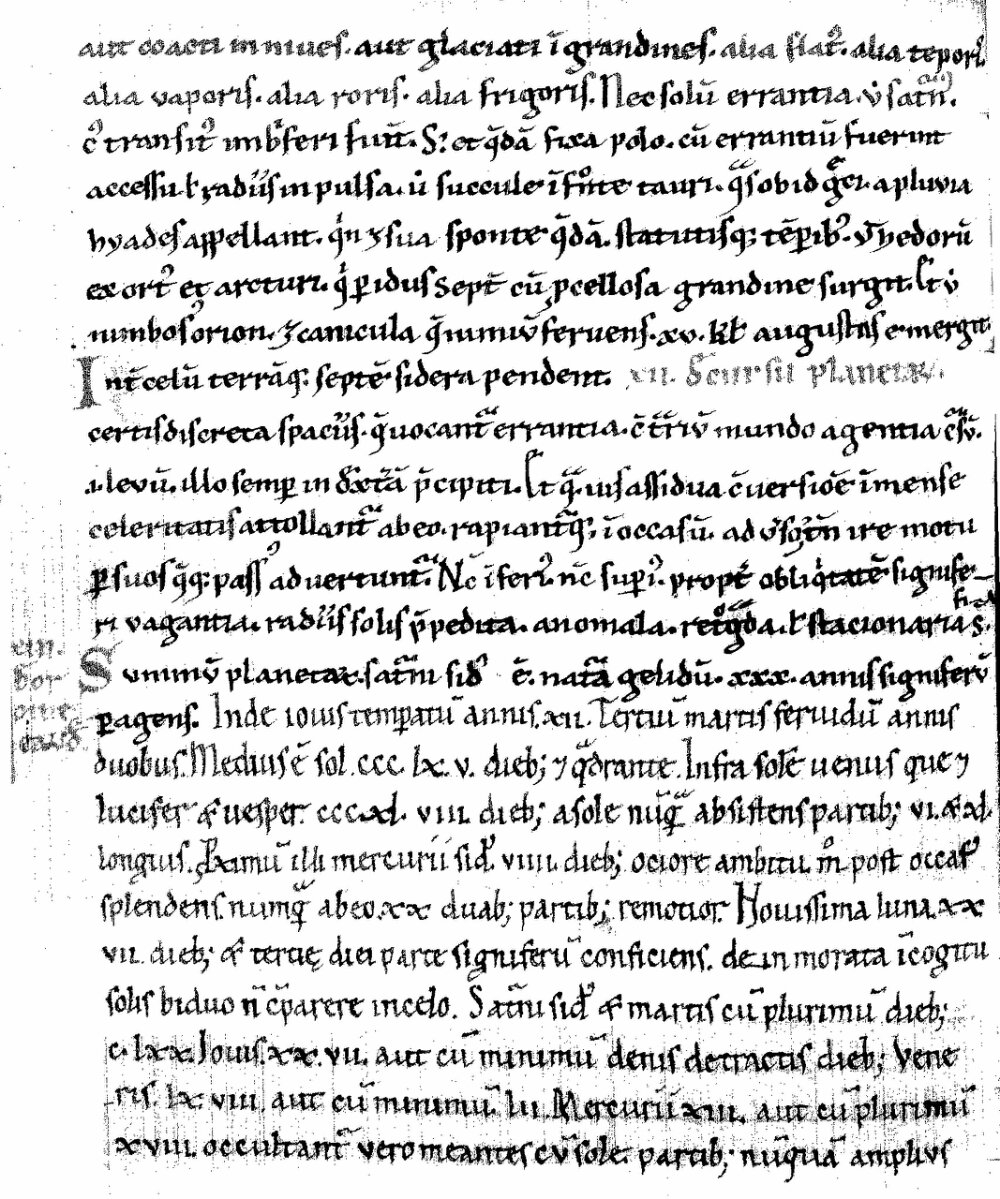 aut coacti in niues. aut glaciati ī grandines. alia flat᷒. alia tepori᷒
alia vaporis. alia roris. alia frigoris. Nec solū errantia. v̄ satn̄.
c̄ transit᷒ imbʼferi funt̄. S; et q̄dā fixa polo. cū errantiū fuerint
accessu ł radiis inpulsa. u̇ succule ī frōnte tauri. q̄s ob id greci. a pluvia
hyades appellant. qn̄ ⁊ sua sponte q̄dā. statutisq; tēꝑib᷒. v̇ hedorū
exort᷒ et arcturi. q̇ ꝑ idus sept̄ cū ꝓcellosa grandine surgit. Et v̇
nimbos᷒ orion. ⁊ canicula q̄ nimiū fervens. xv. kł augustas emergit
Int̄ celū terrāq; septē sidera pendent. xii. De cursu planetarꝝ.
certis discreta spaciis. q̄ uocant᷑ errantia. c̄trariū mundo agentia cursū.
.i. levū. illo semꝑ in dextrā p̄cipiti. Et q̄uis assidua c̄uersiōe īmense
celeritatis attollant᷑ ab eo. rapiantq; ī occasū. advsō tn̄ ire motu
ꝑ suos q̄q; pass᷒ advertunt᷑. Nc̄ īferi᷒. nc̄ suꝑi᷒. propt̄ obliq̇tatē signife
ri vagantia. radiis solis p̄pedita. anomala. ret͛gda. ł stacionaria
fi&
S.
xiii.
Summū planetarꝝ. satn̄i sid᷒ ē. natā gelidū. xxx. annis signiferū
ꝑagens. Inde iouis temꝑatū annis. xii. Tertiū martis feruidū annis
duobus. Medius ē sol. ccc. lx. v. dieb; ⁊ q̄drante. Infra solē uenus que ⁊
lucifer & uesper. ccc.xl. viii. dieb; a sole nūq̄ absistens partib; vi. & xl.
longius. Ꝓximū illi mercurii sid᷒. viiii. dieb; ociore ambitu. m̊ post occas᷒
splendens. numq̄ ab eo. xx duab; partib; remotior. Nouissima luna. xx
vii. dieb; & tercię diei parte signiferū conficiens. dein morata ī cogitu
solis biduo n̄ c̄parere in celo. Satn̄i sid᷒ & martis cū plurimū dieb;
c. lxx. Iouis. xx. vii. aut cū minimū denis detractis dieb; Vene
ris. lx. viiii. aut cū minimū. lii. Mercurii xiii. aut cū plurimū
xviii. occultant᷑ vero meantes cū sole. partib; nūquā amplius